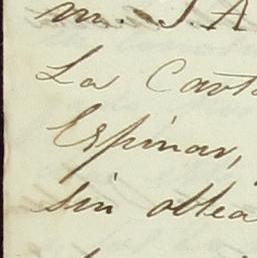 m. J. A
La Cart
Espinar,
sin altea